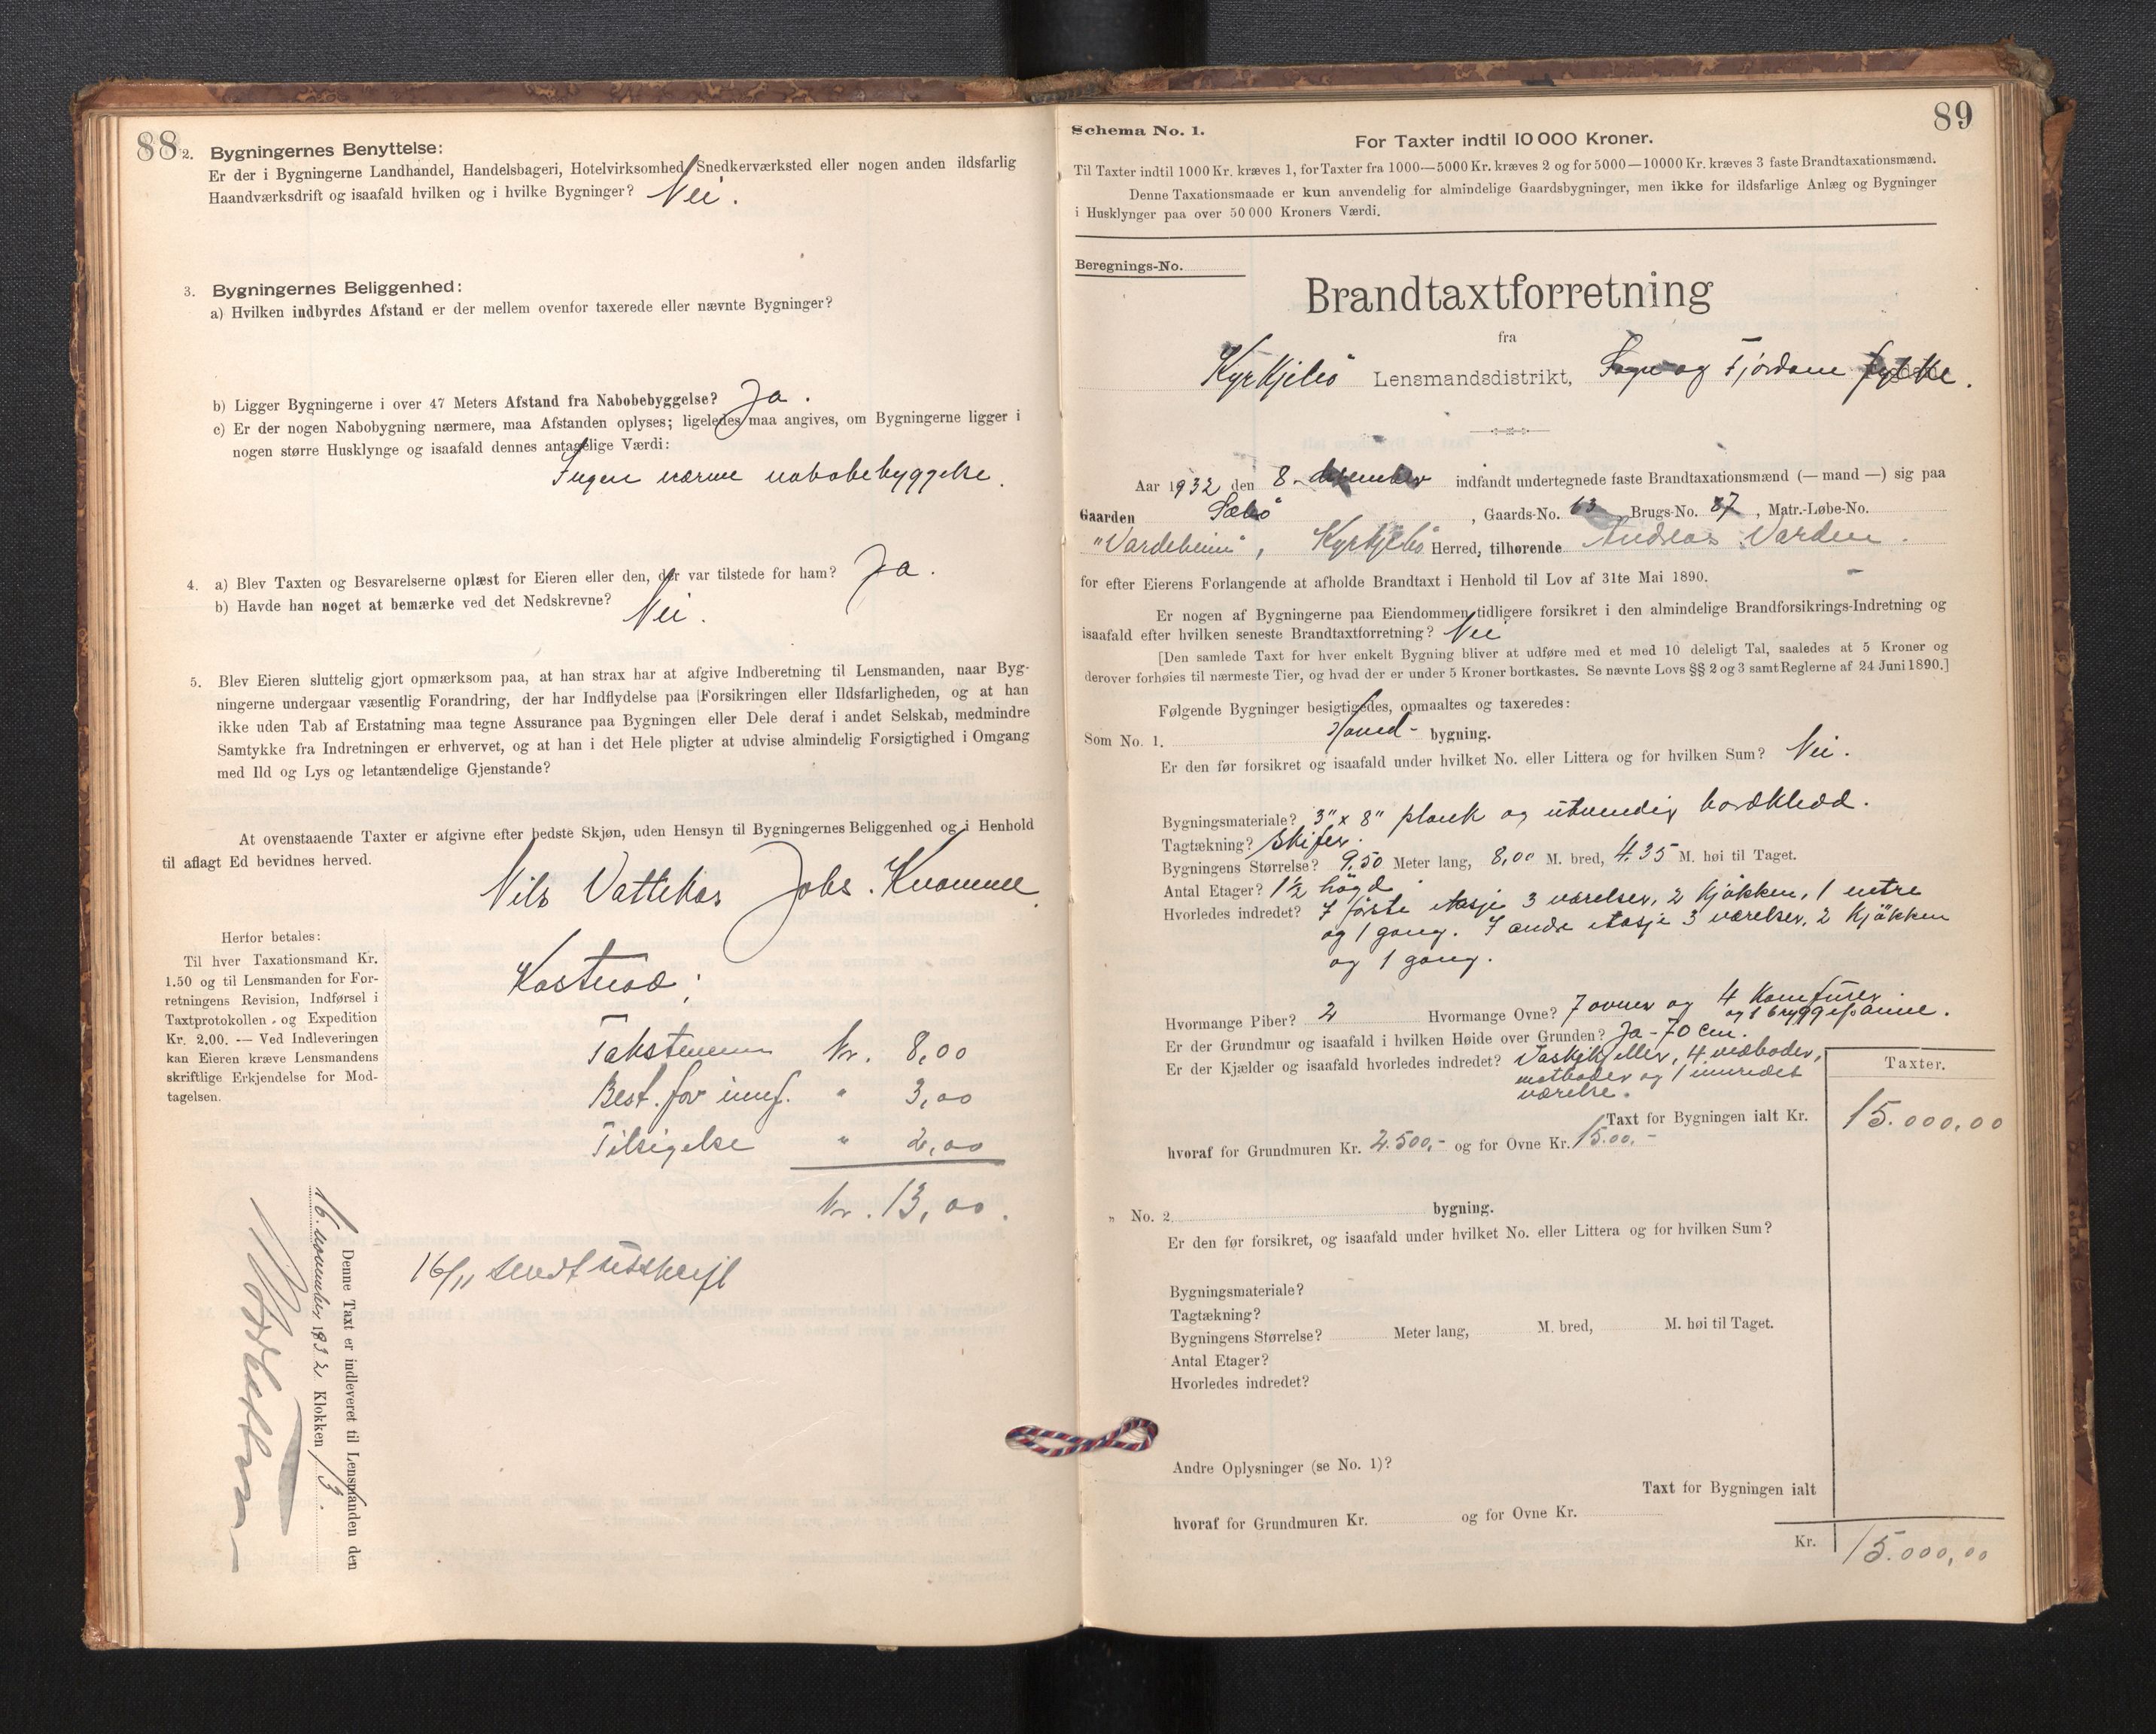 88
2. Bygningernes Benyttelse:
Er der i Bygningerne Landhandel, Handelsbageri, Hotelvirksomhed, Snedkerværksted eller nogen anden ildsfarlig
Haandværksdrift og isaafald hvilken og i hvilke Bygninger? Nei.
3. Bygningernes Beliggenhed:
a) Hvilken indbyrdes Afstand er der mellem ovenfor taxerede eller nævnte Bygninger?
b) Ligger Bygningerne i over 47 Meters Afstand fra Nabobebyggelse? Ja.
c) Er der nogen Nabobygning nærmere, maa Afstanden oplyses; ligeledes maa angives, om Bygningerne ligger i
nogen større Husklynge og isaafald dennes antagelige Værdi:
Ingen nærme nabobebyggelse.
4. a) Blev Taxten og Besvarelserne oplæst for Eieren eller den, der var tilstede for ham? Ja.
b) Havde han noget at bemærke ved det Nedskrevne? Nei.
5. Blev Eieren sluttelig gjort opmærksom paa, at han strax har at afgive Indberetning til Lensmanden, naar Byg-
ningerne undergaar væsentlig Forandring, der har Indflydelse paa Forsikringen eller Ildsfarligheden, og at han
ikke uden Tab af Erstatning maa tegne Assurance paa Bygningen eller Dele deraf i andet Selskab, medmindre
Samtykke fra Indretningen er erhvervet, og at han i det Hele pligter at udvise almindelig Forsigtighed i Omgang
med Ild og Lys og letantændelige Gjenstande?
At ovenstaaende Taxter er afgivne efter bedste Skjøn, uden Hensyn til Bygningernes Beliggenhed og i Henhold
til aflagt Ed bevidnes herved.
Nils Vattekar Johs. Kvamme.
Herfor betales:
Til hver Taxationsmand Kr.
1.50 og til Lensmanden for For-
retningens Revision, Indførsel i
Taxtprotokollen og Expedition
Kr. 2.00. — Ved Indleveringen
kan Eieren kræve Lensmandens
skriftlige Erkjendelse for Mod-
tagelsen.
Kostnad:
Takstemenn Kr. 8,00
Best. for innf. " 3,00
Tilsigelse " 2,00
Kr. 13,00.
16/11 sendt utskrift
Denne Taxt er indleveret til Lensmanden den
16. november 1932 Klokken 13.
89
Schema No. 1.
For Taxter indtil 10 000 Kroner.
Til Taxter indtil 1000 Kr. kræves 1, for Taxter fra 1000—5000 Kr. kræves 2 og for 5000—10000 Kr. kræves 3 faste Brandtaxationsmænd.
Denne Taxationsmaade er kun anvendelig for almindelige Gaardsbygninger, men ikke for ildsfarlige Anlæg og Bygninger
i Husklynger paa over 50 000 Kroners Værdi.
Beregnings-No.
Brandtaxtforretning
fra
Kyrkjebö Lensmandsdistrikt, Sogn og Fjordane fylke.
Aar 1932 den 8. indfandt undertegnede faste Brandtaxationsmænd (— mand —) sig paa
Gaarden Sæbö, Gaards-No. 63, Brugs-No. 87, Matr.-Løbe-No.
"Vardeheim", Kyrkjebö Herred, tilhørende Andreas Varden.
for efter Eierens Forlangende at afholde Brandtaxt i Henhold til Lov af 31te Mai 1890.
Er nogen af Bygningerne paa Eiendommen tidligere forsikret i den almindelige Brandforsikrings-Indretning og
isaafald efter hvilken seneste Brandtaxtforretning? Nei
[Den samlede Taxt for hver enkelt Bygning bliver at udføre med et med 10 deleligt Tal, saaledes at 5 Kroner og
derover forhøies til nærmeste Tier, og hvad der er under 5 Kroner bortkastes. Se nævnte Lovs §§ 2 og 3 samt Reglerne af 24 Juni 1890.]
Følgende Bygninger besigtigedes, opmaaltes og taxeredes:
Som No. 1. Hoved- bygning.
Er den før forsikret og isaafald under hvilket No. eller Littera og for hvilken Sum? Nei.
Bygningsmateriale? 3" x 8" plank og utvendig bordkledd.
Tagtækning? Skifer.
Bygningens Størrelse? 9,50 Meter lang, 8,00 M. bred, 4,35 M. høi til Taget.
Antal Etager? 1½ högd
Hvorledes indredet? I förste etasje 3 værelser, 2 kjökken, 1 entre
og 1 gang. I andre etasje 3 værelser, 2 kjökken
og 1 gang.
Hvormange Piber? 2 Hvormange Ovne? 7 ovner og 4 komfurer
og 1 bryggepanne.
Er der Grundmur og isaafald i hvilken Høide over Grunden? Ja - 70 cm.
Er der Kjælder og isaafald hvorledes indredet? Vaskekjeller, 4 vedboder,
matboder og 1 innredet
værelse.
Taxter.
Taxt for Bygningen ialt Kr. 15.000,00
hvoraf for Grundmuren Kr. 2.500,- og for Ovne Kr. 15.00,-
" No. 2 bygning.
Er den før forsikret, og isaafald under hvilket No. eller Littera og for hvilken Sum?
Bygningsmateriale?
Tagtækning?
Bygningens Størrelse? Meter lang, M. bred, M. høi til Taget.
Antal Etager?
Hvorledes indredet?
Andre Oplysninger (se No. 1)?
Taxt for Bygningen ialt
hvoraf for Grundmuren Kr. og for Ovne Kr.
Kr. 15.000,00